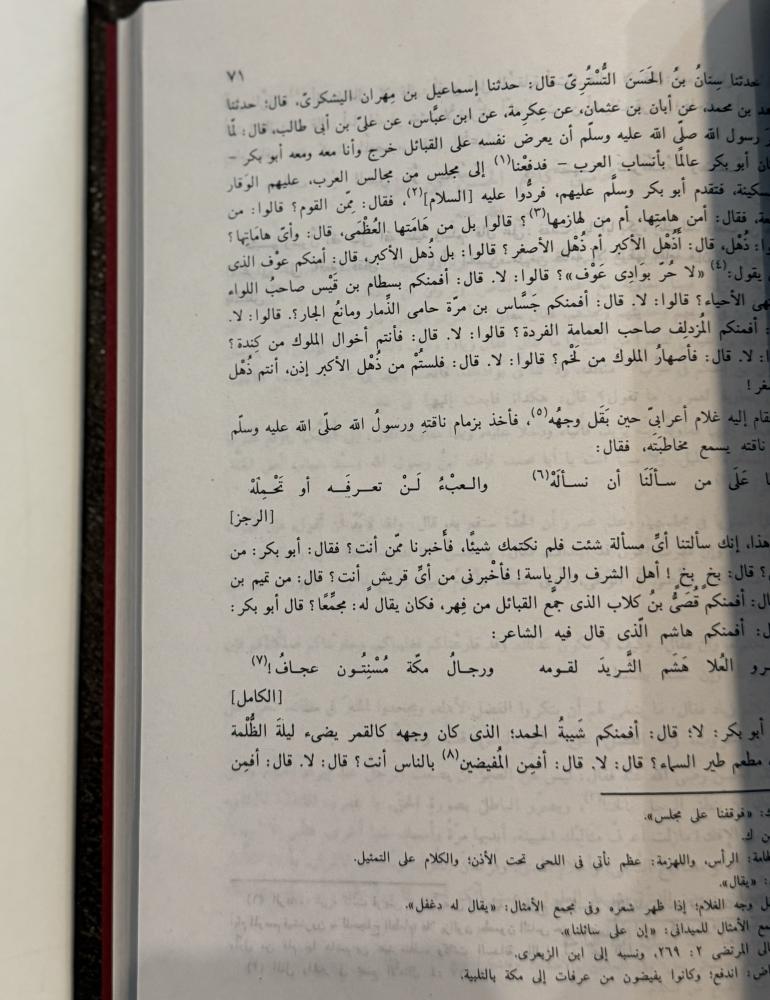 ٧١
حدثنا سِنانُ بنُ الحَسَن التُّسْتُرِىّ قال: حدثنا إسماعيل بن مِهران اليشكرىّ، قال: حدثنا
بن محمد، عن أبان بن عثمان، عن عِكرِمة، عن ابن عبَّاس، عن علىّ بن أبى طالب، قال: لمّا
رسول الله صلّى الله عليه وسلّم أن يعرض نفسه على القبائل خرج وأنا معه ومعه أبو بكر –
أبو بكر عالمًا بأنساب العرب – فدفعْنا(١) إلى مجلس من مجالس العرب، عليهم الوقار
فتقدم أبو بكر وسلَّم عليهم، فردُّوا عليه [السلام](٢)، فقال: مِمّن القوم؟ قالوا: من
فقال: أمن هامتِها، أم من لهازمها(٣)؟ قالوا بل من هَامَتها العُظْمَى، قال: وأىّ هامَاتِها؟
ذُهْل، قال: أَذُهْل الأكبر أم ذُهْل الأصغر؟ قالوا: بل ذُهل الأكبر، قال: أمنكم عوْف الذى
يقول:(٤) «لا حُرّ بوَادِى عَوْف»؟ قالوا: لا. قال: أفمنكم بسطام بن قَيْس صاحبُ اللواء
الأحياء؟ قالوا: لا. قال: أفمنكم جَسَّاس بن مرّة حامى الذِّمار ومانعُ الجار؟. قالوا: لا.
أفمنكم المُزدلِف صاحب العمامة الفردة؟ قالوا: لا. قال: فأنتم أخوال الملوك من كِندة؟
لا. قال: فأصهارُ الملوك من لَخْم؟ قالوا: لا. قال: فلستُمْ من ذُهْل الأكبر إذن، أنتم ذُهْل
فقام إليه غلام أعرابىّ حين بَقَل وجهُه(٥)، فأخذ بزمام ناقتهِ ورسولُ الله صلّى الله عليه وسلّم
ناقته يسمع مخاطبَتَه، فقال:
عَلَى من سألَنَا أن نسـألَهْ(٦) والـعبْءُ لَـنْ تعـرفَـه أو تَحْـمِلَهْ
[الرجز]
هذا، إنك سألتنا أىَّ مسألة شئت فلم نكتمك شيئًا، فأَخبرنا ممّن أنت؟ فقال: أبو بكر: من
قال: بخٍ بخٍ! أهل الشرف والرياسة! فأخْبرنى من أىِّ قريش أنت؟ قال: من تميم بن
أفمنكم قُصَىُّ بنُ كلاب الذى جمَّع القبائل من فِهر، فكان يقال له: مجمِّعًا؟ قال أبو بكر:
أفمنكم هاشم الّذى قال فيه الشاعر:
العُلا هَشَم الثَّـريدَ لقـومه ورجـالُ مكّة مُسْنِتُـون عجـافُ!(٧)
[الكامل]
أبو بكر: لا؛ قال: أفمنكم شَيبةُ الحمد؛ الذى كان وجهه كالقمر يضىء ليلةَ الظُّلْمة
مطعم طير السماء؟ قال: لا. قال: أفمِن المُفيضين(٨) بالناس أنت؟ قال: لا. قال: أفمِن
«فوقفنا على مجلس».
ن ك.
الرأس، واللهزمة: عظم نأتى فى اللحى تحت الأذن؛ والكلام على التمثيل.
«يقال».
وجه الغلام: إذا ظهر شعره وفى مجمع الأمثال: «يقال له دغفل».
الأمثال للميدانى: «إن على سائلنا».
المرتضى ٢: ٢٦٩، ونسبه إلى ابن الزبعرى.
اندفع؛ وكانوا يفيضون من عرفات إلى مكة بالتلبية.